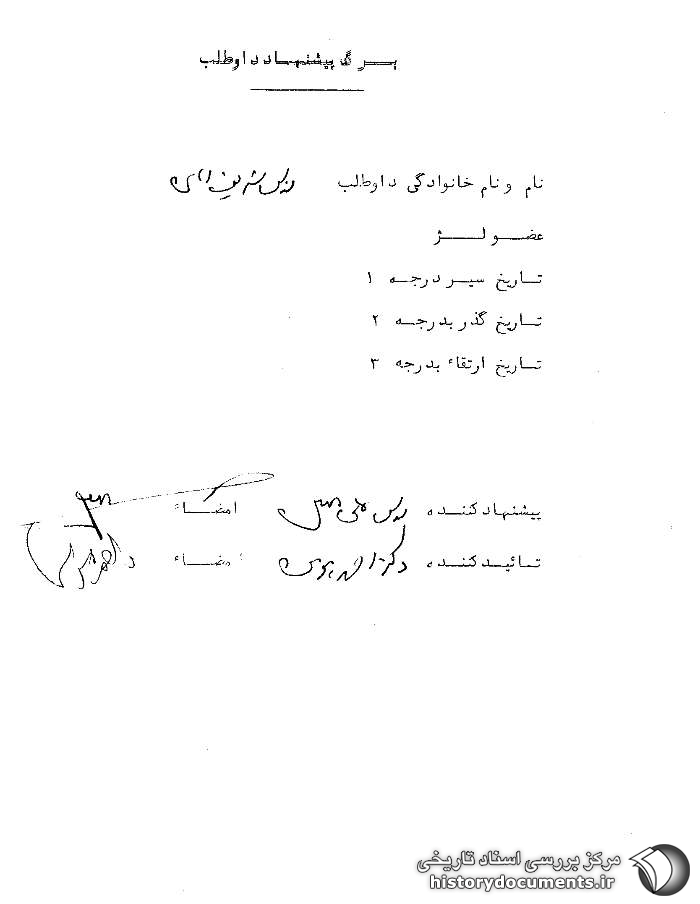 بـرگ پیشنهاد داوطلب
نام و نام خانوادگی داوطلب مهندس شریف امامی
عضو لـژ
تاریخ سیر درجه ۱
تاریخ گذر بدرجه ۲
تاریخ ارتقاء بدرجه ۳
پیشنهاد کننده مهندس امضاء
تائید کننده دکتر امضاء
مرکز بررسی اسناد تاریخی
historydocuments.ir